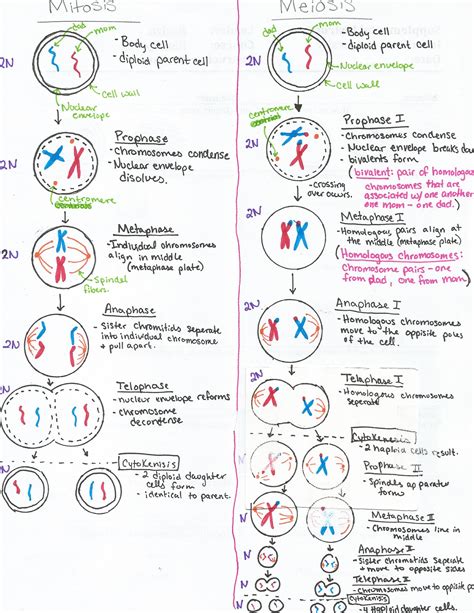 Mitosis
dad
mom
- Body cell
- diploid parent cell
2N
Cell wall
Nuclear
envelope
Prophase
- Chromosomes condense
- Nuclear envelope
disolves.
2N
centromere
Metaphase
- Individual chromosomes
align in middle
(metaphase plate)
2N
Spindel
fibers.
Anaphase
- Sister Chromitids seperate
into individual chromosome
+ pull apart.
2N
Telophase
- nuclear envelope reforms
- chromosome
decondense
2N
Cytokenisis
- 2 diploid daughter
cells form
- identical to parent.
N
N
Meiosis
dad
mom
- Body cell
- diploid parent cell
2N
Nuclear envelope
Cell wall
centromere
Prophase I
- Chromosomes condense
- Nuclear envelope breaks down
- bivalents form
(bivalent: pair of homologous
chromosomes that are
associated w/ one another
one mom - one dad.)
2N
- crossing
over occurs.
Metaphase I
- Homologous pairs align at
the middle (metaphase plate)
(Homologous chromosomes:
Chromosome pairs - one
from dad, one from mom)
2N
Anaphase I
- Homologous chromosomes
move to the opposite poles
of the cell.
2N
Telaphase I
- Homologous chromosomes
seperate
2N
Cytokenesis
- 2 haploid cells result.
Prophase II
- Spindles apparatus
forms
N
N
Metaphase II
- Chromosomes line in
middle
N
N
Anaphase II
- Sister chromatids seperate
+ move to opposite sides
N
Telephase II
- Chromosomes move to opposite
Cytokinesis
- 4 Haploid daughter cells
N